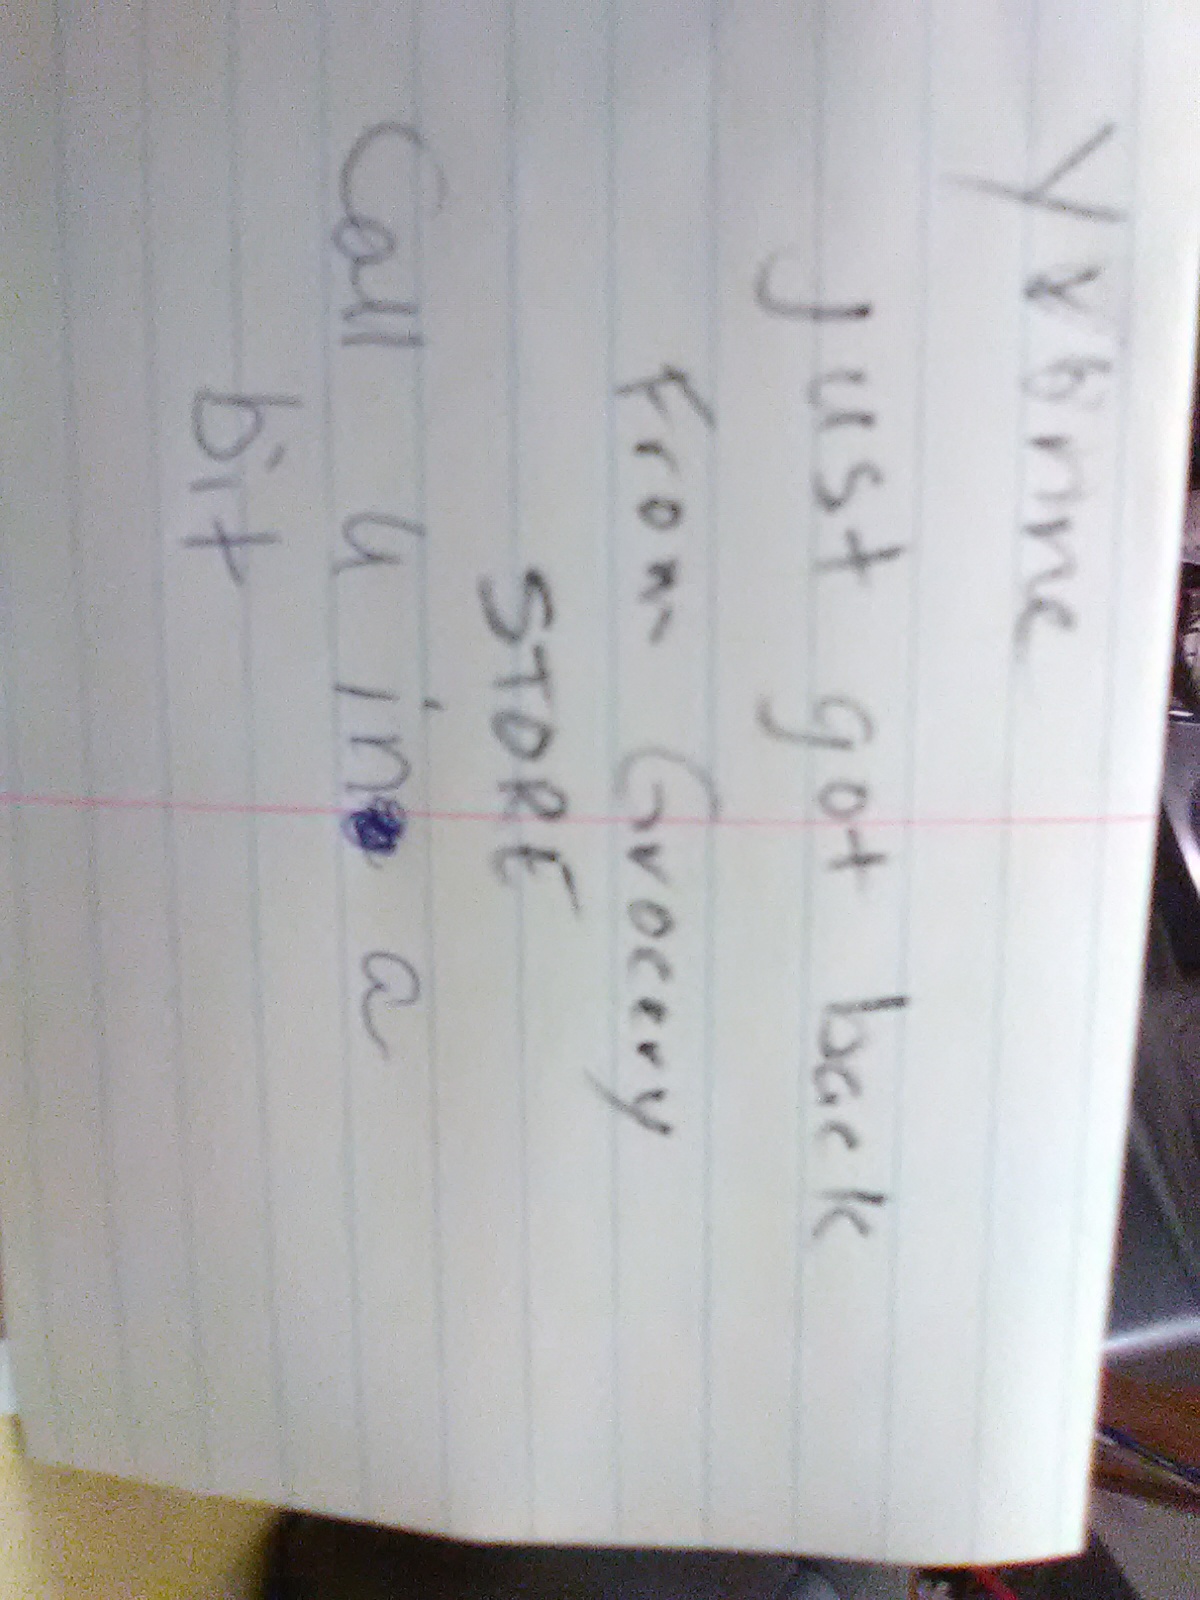 Yvonne
Just got back
From Grocery
STORE
Call u in a
bit